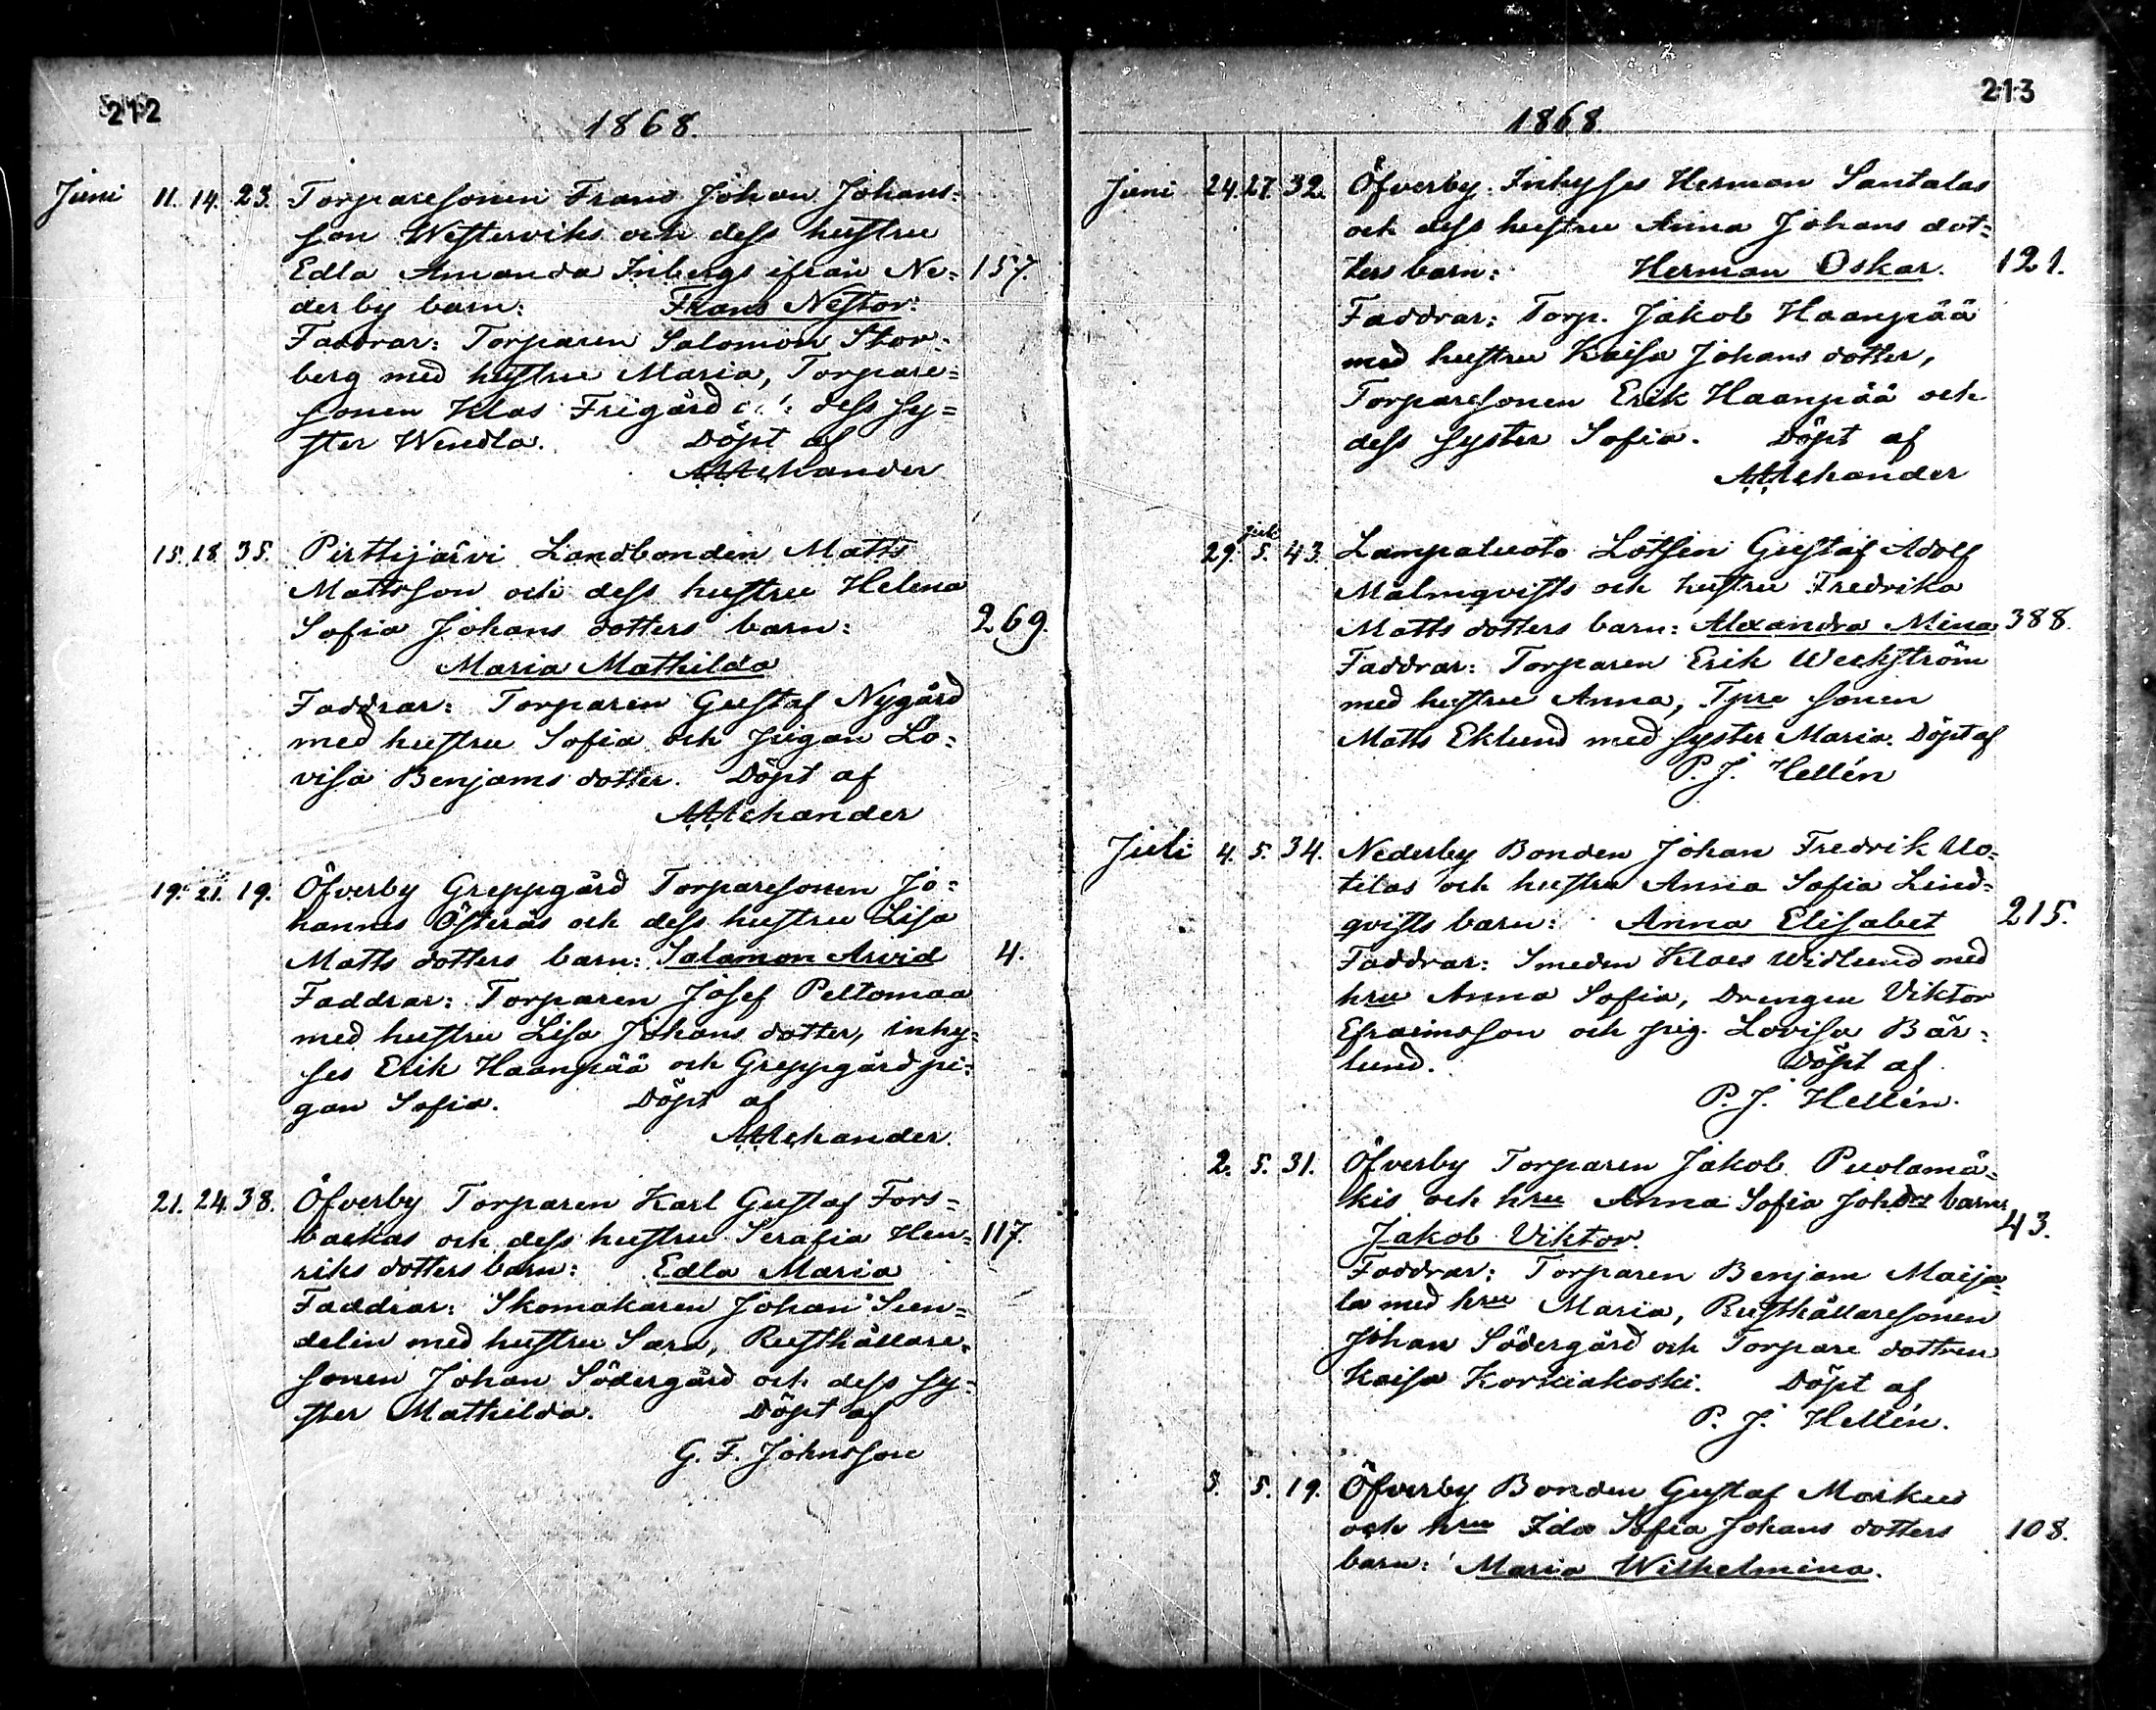 212
1868.
Juni 11. 14. 23. Torparesonen Frans Johan Johans=
son Westerviks och dess hustru
Edla Amanda Inbergs ifrån Ne= 157.
derby barn: Frans Nestor.
Faddrar: Torparen Salomon Stor=
berg med hustru Maria, Torpare=
sonen Klas Frigård dess sy=
ster Wendla. Döpt af
Achander
15. 18. 35. Pirttijärvi Landbonden Matts
Mattsson och dess hustru Helena
Sofia Johans dotters barn: 269.
Maria Mathilda
Faddrar: Torparen Gustaf Nygård
med hustru Sofia och pigan Lo=
visa Benjams dotter. Döpt af
Achander
19. 21. 19. Öfverby Greppgård Torparesonen Jo=
hannes Österås och dess hustru Lisa
Matts dotters barn: Salamon Arvid 4.
Faddrar: Torparen Josef Peltomaa
med hustru Lisa Johans dotter, inhy=
ses Erik Haanpää och Greppgård pi=
gan Sofia. Döpt af
Achander.
21. 24. 38. Öfverby Torparen Karl Gustaf Fors=
backas och dess hustru Serafia Hen= 117.
riks dotters barn: Edla Maria
Faddrar: Skomakaren Johan Sun=
delin med hustru Sara, Rusthållare=
sonen Johan Södergård och dess sy=
ster Mathilda. Döpt af
G. F. Johnsson
213
1868.
Juni 24. 27. 32. Öfverby Inhyses Herman Santalas
och dess hustru Anna Johans dot=
ters barn: Herman Oskar. 121.
Faddrar: Torp. Jakob Haanpää
med hustru Kaisa Johans dotter,
Torparesonen Erik Haanpää och
dess syster Sofia. Döpt af
Achander
juli
29. 5. 43. Lampaluoto Lotsen Gustaf Adolf
Malmqvists och hustru Fredrika
Matts dotters barn: Alexandra Mina 388.
Faddrar: Torparen Erik Weckström
med hustru Anna, Tpre sonen
Matts Eklund med syster Maria. Döpt af
P. J. Hellén
Juli 4. 5. 34. Nederby Bonden Johan Fredrik Uo=
tilas och hustru Anna Sofia Lind=
qvists barn: Anna Elisabet 215.
Faddrar: Smeden Klaes Widlund med
hru Anna Sofia, Drengen Viktor
Efraimsson och pig. Lovisa Bär=
lund. Döpt af
P. J. Hellén.
2. 5. 31. Öfverby Torparen Jakob Puolamä=
kis och hru Anna Sofia Joh. drs barn:
Jakob Viktor. 43.
Faddrar: Torparen Benjam Maija=
la med hru Maria, Rusthållaresonen
Johan Södergård och Torpare dottren
Kaisa Korkiakoski. Döpt af
P. J. Hellén.
3. 5. 19. Öfverby Bonden Gustaf Markus
och hru Ida Sofia Johans dotters 108.
barn: Maria Wilhelmina.